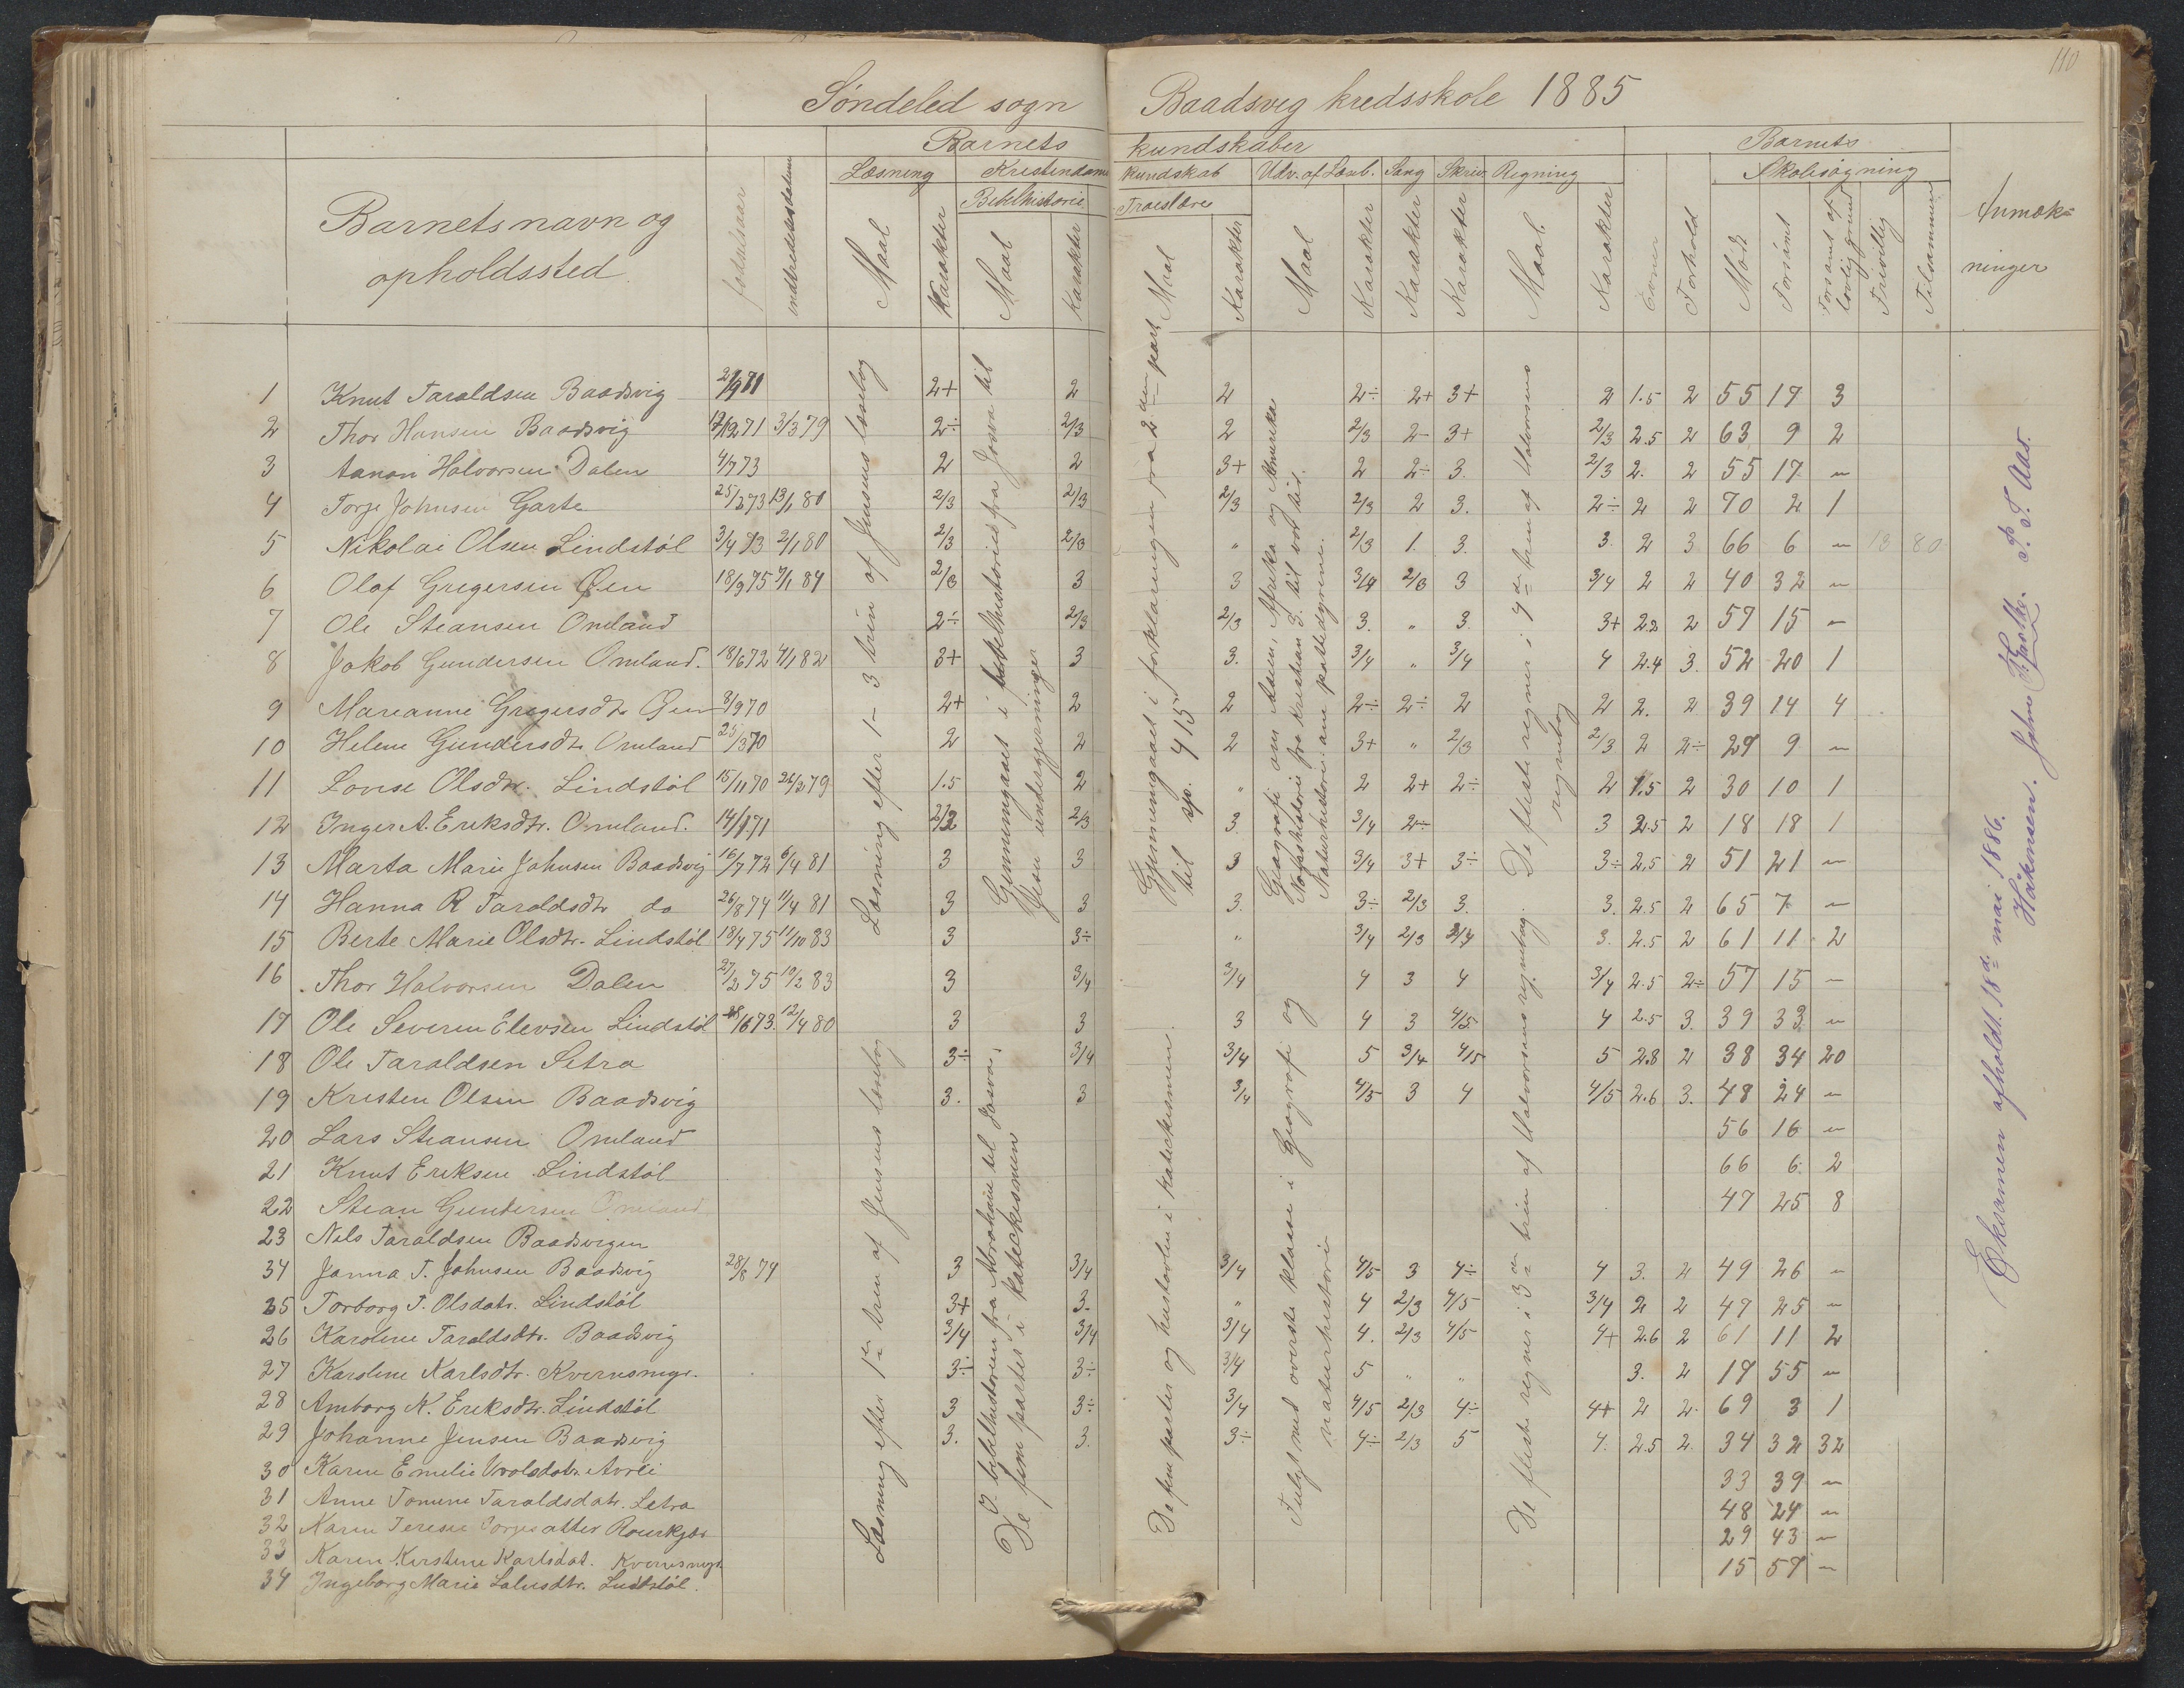 110
Søndeled sogn Baadsvig kredsskole 1885
Barnets kundskaber Barnets
Læsning Kristendoms kundskab Udv. af Læseb. Sang Skriv. Regning Skolesøgning
Bibelhistorie Troeslære
Barnets navn og
opholdssted.
fødselsaar
indtrædelsesdatum
Maal Karakter Maal Karakter Maal Karakter Maal Karakter Karakter Karakter Maal Karakter Evner Forhold Mødt Forsømt Forsømt af lovlig grund Frivillig Tilsammen
Anmærk=
ninger
1 Knut Taraldsen Baadsvig 2+ 2 2 2÷ 2+ 3+ 2 1.5 2 55 17 3
2 Thor Hansen Baadsvig 17/12 71 3/3 79 2÷ 2/3 2 2/3 2- 3+ 2/3 2.5 2 63 9 2
3 Aanon Halvorsen Dalen 4/7 73 2 2 3+ 2 2÷ 3. 2/3 2. 2 55 17 "
4 Torje Johnsen Garte 25/3 73 13/1 80 2/3 2/3 2/3 2/3 2 3. 2÷ 2 2 70 2 1
5 Nikolai Olsen Lindstøl 3/4 73 2/1 80 2/3 2/3 " 2/3 1. 3. 3. 2 3 66 6 " 18 80
6 Olaf Gregersen Øen 18/9 75 7/1 84 2/3 3 3 3/4 2/3 3 3/4 2 2 40 32 "
7 Ole Steansen Omland 2÷ 2/3 2/3 3. " 3. 3+ 2.2 2 57 15 "
8 Jakob Gundersen Omland. 18/6 72 4/1 82 3+ 3 3. 3/4 " 3/4 4 2.4 3. 52 20 1
9 Marianne Gregersdtr Øen 3/9 70 2+ 2 2 2÷ 2÷ 2 2 2. 2 39 14 4
10 Helene Gundersdtr. Omland 25/3 70 2 2 2 3+ " 2/3 2/3 2 2÷ 29 9 "
11 Lovise Olsdtr. Lindstøl 15/11 70 26/3 79 1.5 2 " 2 2+ 2÷ 2 1.5 2 30 10 1
12 Inger A. Eriksdtr. Omland. 14/1 71 2/3 2/3 3. 3/4 2÷ 3 2.5 2 18 18 1
13 Marta Marie Johnsen Baadsvig 16/7 72 6/4 81 3 3 3 3/4 3+ 3÷ 3÷ 2.5 2 51 21 "
14 Hanna R Taraldsdtr do 26/8 74 4/4 81 3 3 3. 3÷ 2/3 3. 3. 2.5 2 65 7 "
15 Berte Marie Olsdtr. Lindstøl 18/4 75 11/10 83 3 3÷ " 3/4 2/3 3/4 3. 2.5 2 61 11 2
16 Thor Halvorsen Dalen 27/2 75 19/2 83 3 3/4 3/4 4 3 4 3/4 2.5 2÷ 57 15 "
17 Ole Severin Elevsen Lindstøl 12/4 80 3 3 3 4 3 4/5 4 2.5 3. 39 33 "
18 Ole Taraldsen Setra 3÷ 3/4 3/4 5 3/4 4/5 5 2.8 2 38 34 20
19 Kristen Olsen Baadsvig 3. 3 3/4 4/5 3 4 4/5 2.6 3. 48 24 "
20 Lars Steansen Omland 56 16 "
21 Knut Eriksen Lindstøl 66 6. 2
22 Stean Gundersen Omland 47 25 8
23 Nils Taraldsen Baadsvigen
34 Janna T. Johnsen Baadsvig 28/8 74 3 3/4 3/4 4/5 3 4÷ 4 3. 2 49 26 "
25 Torborg T. Olsdatr. Lindstøl 3+ 3. " 4 2/3 4/5 3/4 2 2 47 25 "
26 Karoline Taraldsdtr. Baadsvig 3/4 3/4 3/4 4. 2/3 4/5 4+ 2.6 2 61 11 2
27 Karoline Karlsdtr. Kvernsmyr. 3÷ 3÷ 3/4 5 " " 3. 2 17 55 "
28 Amborg K. Eriksdtr. Lindstøl 3 3÷ 3/4 4/5 2/3 4÷ 4+ 2 2. 69 3 1
29 Johanne Jensen Baadsvig 3. 3. 3÷ 4÷ 2/3 5 4. 2.5 2. 34 32 32
30 Karen Emelie 33 39 "
31 Anne Tomine Taraldsdatr. Setra 48 24 "
32 Karen Terese 29 43 "
33 Karen Kirstine Karlsdat. Kvernsmyr. 15 57 "
34 Ingeborg Marie Lindstøl.
Læsning efter 1-3 trin af Jensens læsebog
Gjennemgaaet i bibelhistorie fra Josva til
Jesu undergjerninger
Gjennemgaaet i forklaringen fra 2den part
til sp. 415
Geografi om Asien, Afrika og Amerika
Norgeshistorie fra Kristian 3. til vor tid.
Naturhistorie: om pattedyrene.
De fleste regner i 4de trin af Halvorsens
regnebog
Læsning efter 1ste trin af Jensens læsebog
I bibelhistorien fra Abraham til Josva.
De fem parter i katekismen
De fem parter og hustavlen i katekismen.
Fulgt med øverste klasse i Geografi og
naturhistorie
De fleste regner i 3die trin af Halvorsens regnebog.
Eksamen afholdt 18de mai 1886.
Håkensen. P. T. Aas.